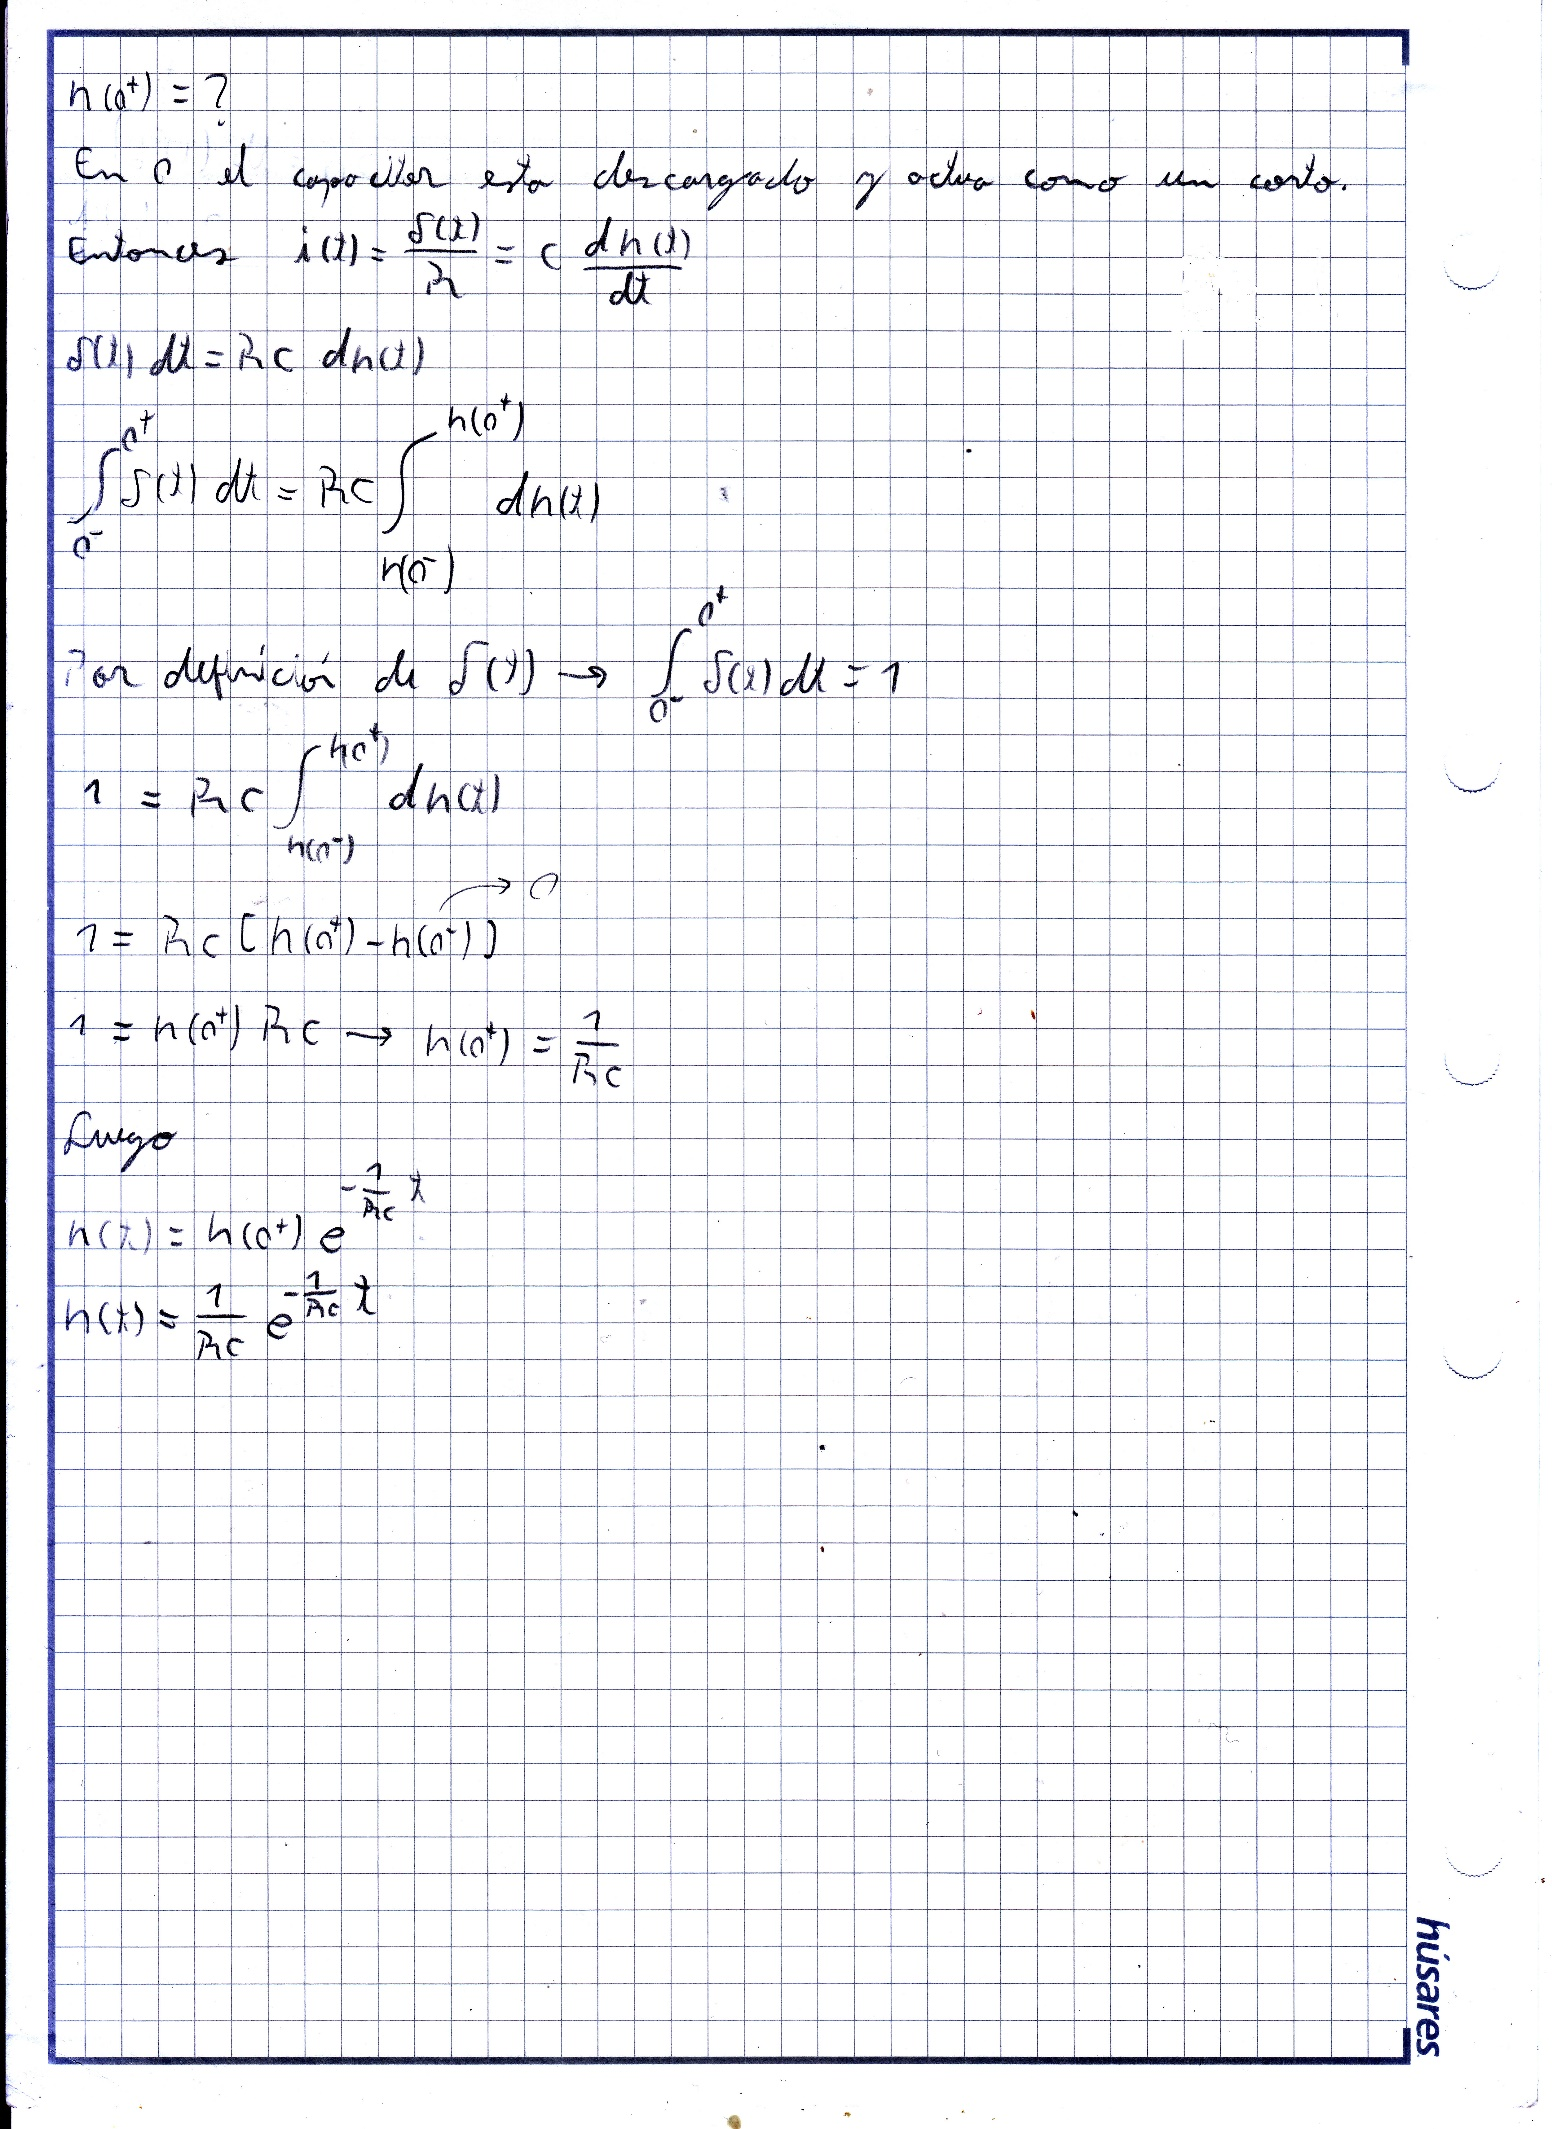 h(0⁺) = ?
En 0 el capacitor esta descargado y actua como un corto.
Entonces i(t) = δ(t)/R = C dh(t)/dt
δ(t) dt = RC dh(t)
∫_{0⁻}^{0⁺} δ(t) dt = RC ∫_{h(0⁻)}^{h(0⁺)} dh(t)
Por definición de δ(t) → ∫_{0⁻}^{0⁺} δ(t) dt = 1
1 = RC ∫_{h(0⁻)}^{h(0⁺)} dh(t)
1 = RC [h(0⁺) - h(0⁻)] → 0
1 = h(0⁺) RC → h(0⁺) = 1/RC
Luego
h(t) = h(0⁺) e^{-1/RC t}
h(t) = 1/RC e^{-1/RC t}
húsares